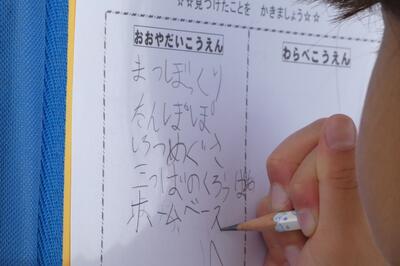 ☆☆見つけたことを かきましょう☆☆
おおやだいこうえん
わらべこうえん
まつぼっくり
たんぽぽ
しろつめぐさ
三つばのくろーばー
ホームベース